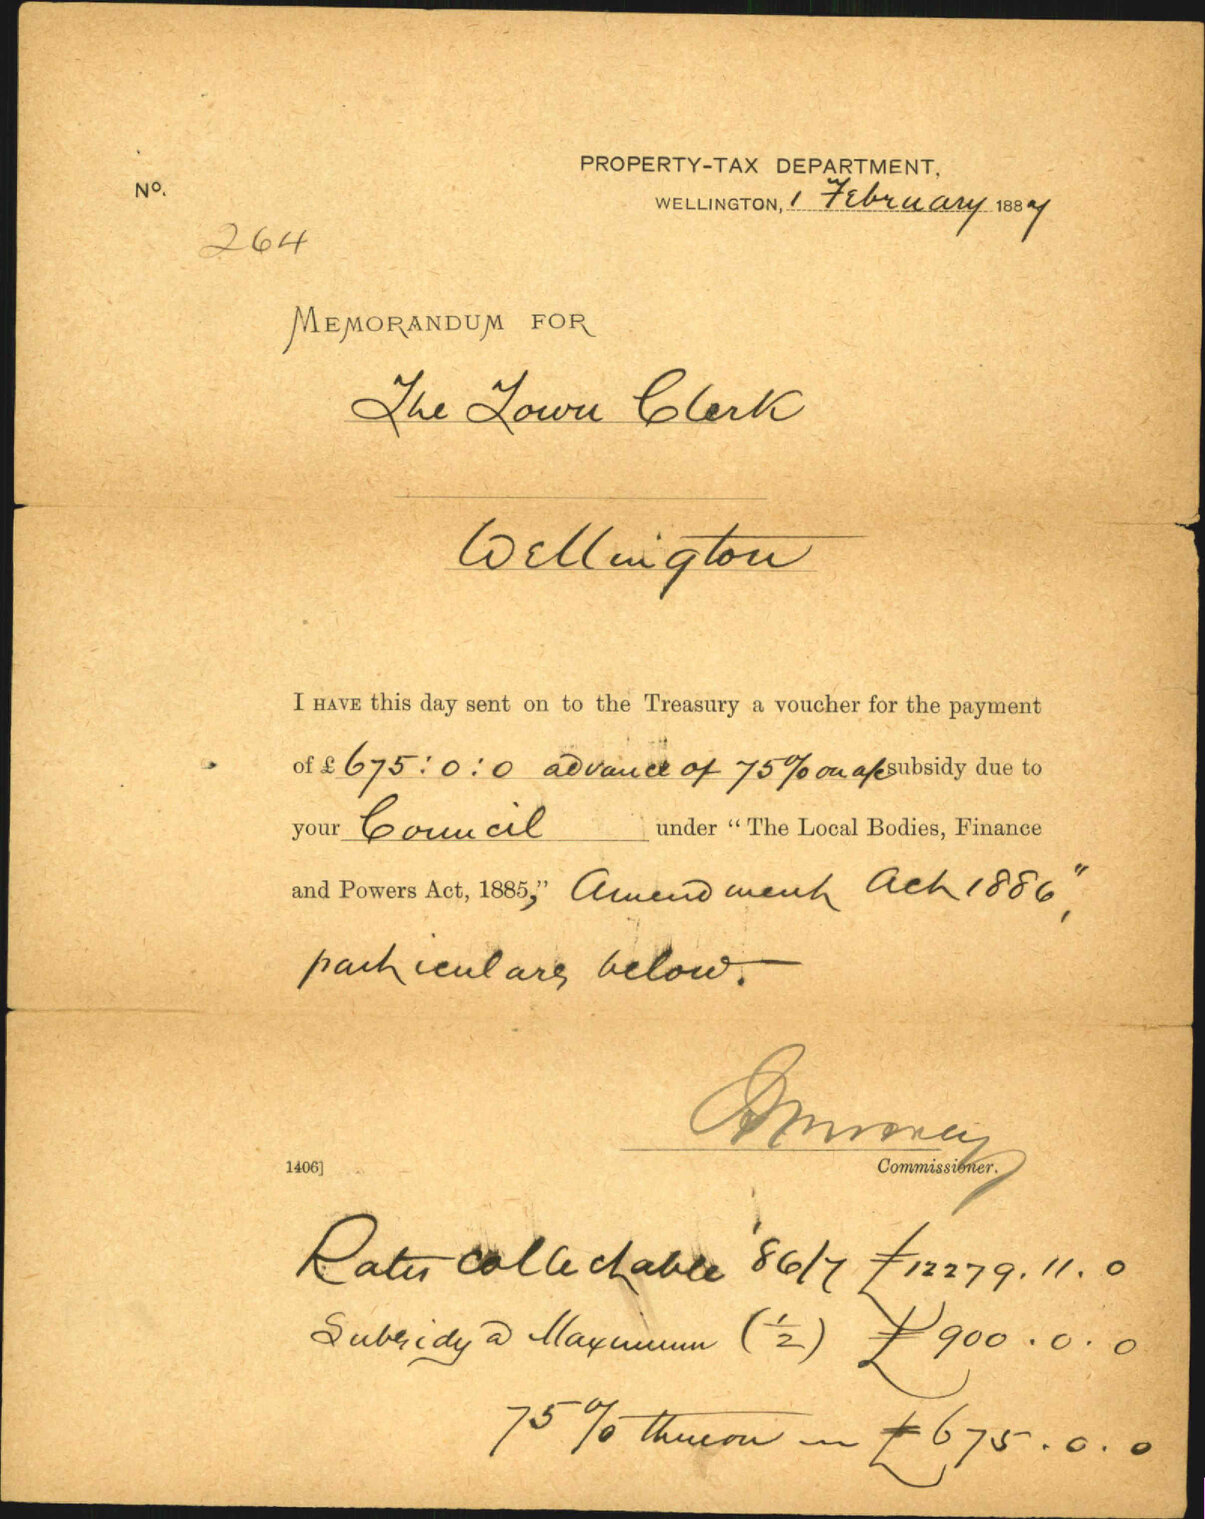 PROPERTY-TAX DEPARTMENT,
No.
WELLINGTON, 1 February 1887
264
MEMORANDUM FOR
The Town Clerk
Wellington
I HAVE this day sent on to the Treasury a voucher for the payment
of £ 675:0:0 advance of 75% on a/c subsidy due to
your Council under “The Local Bodies, Finance
and Powers Act, 1885,” Amendment Act 1886",
particulars below.
Commissioner.
1406]
Rates collectable '86/7 £12279.11.0
Subsidy @ Maximum (1/2) £900.0.0
75% thereon — £675.0.0